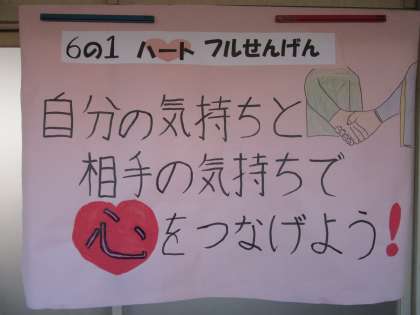 6の1 ハートフルせんげん
自分の気持ちと
相手の気持ちで
心をつなげよう！